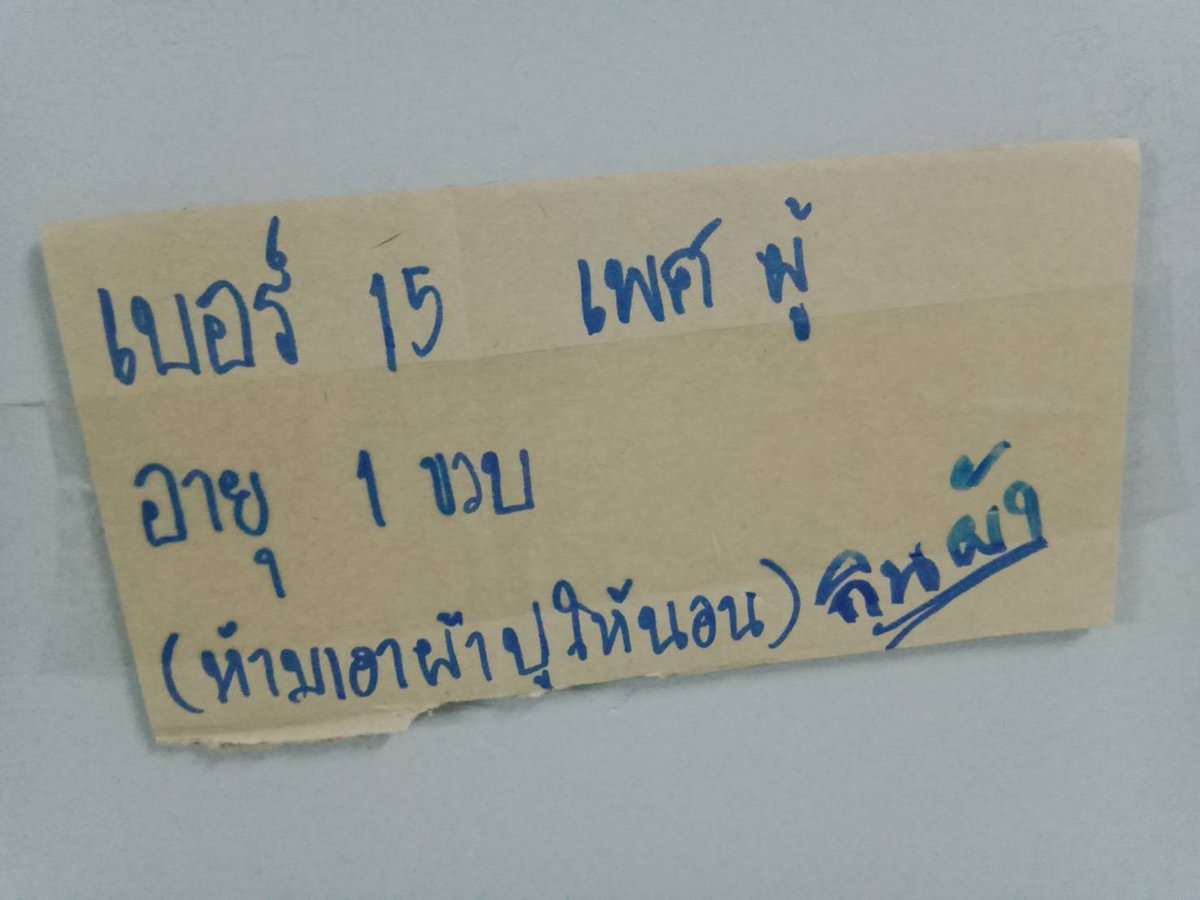 เบอร์ 15 เพศ ผู้
อายุ 1 ขวบ
(ห้ามเอาผ้าปูให้นอน) กินผ้า